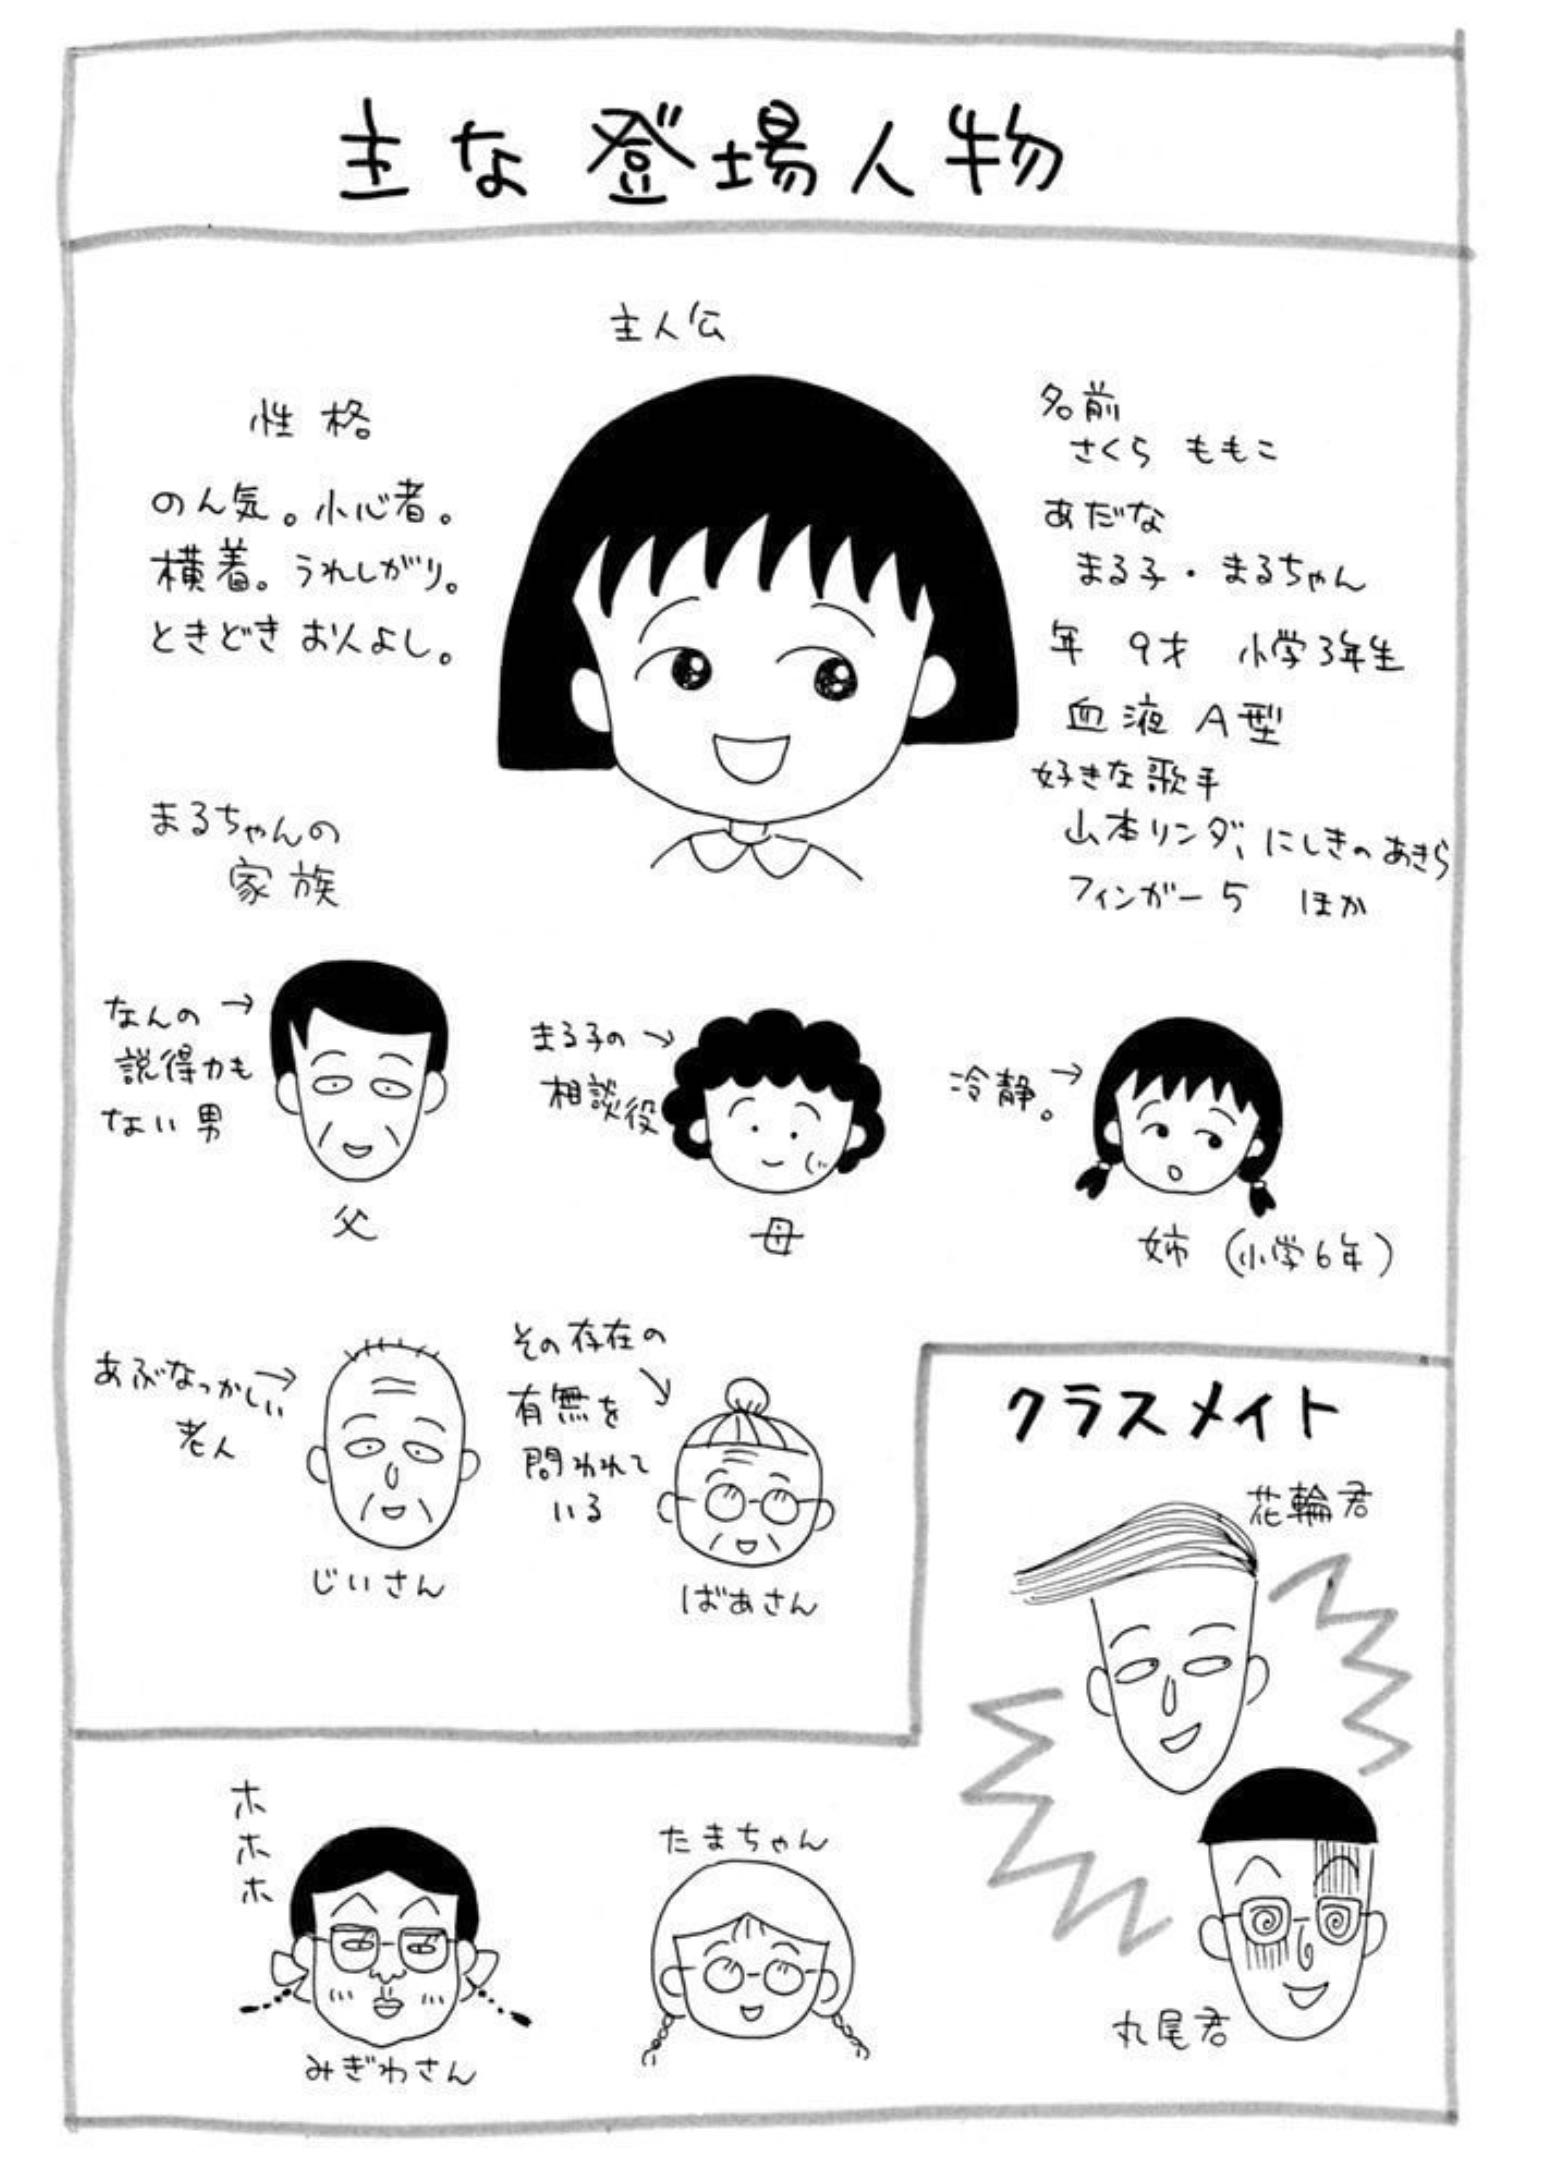 主な登場人物
主人公
性格
のん気。小心者。
横着。うれしがり。
ときどきお人よし。
名前
さくら ももこ
あだな
まる子・まるちゃん
年 9才 小学3年生
血液 A型
好きな歌手
山本リンダ、にしきのあきら
フィンガー5 ほか
まるちゃんの
家族
なんの→
説得力も
ない男
父
まる子の→
相談役
母
冷静。→
姉(小学6年)
あぶなっかしい→
老人
じいさん
その存在の
有無を
問われて
いる
ばあさん
クラスメイト
花輪君
丸尾君
ホホホ
みぎわさん
たまちゃん